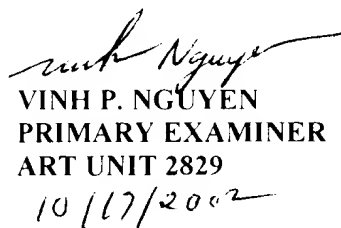 Vinh Nguyen
VINH P. NGUYEN
PRIMARY EXAMINER
ART UNIT 2829
10/17/2002